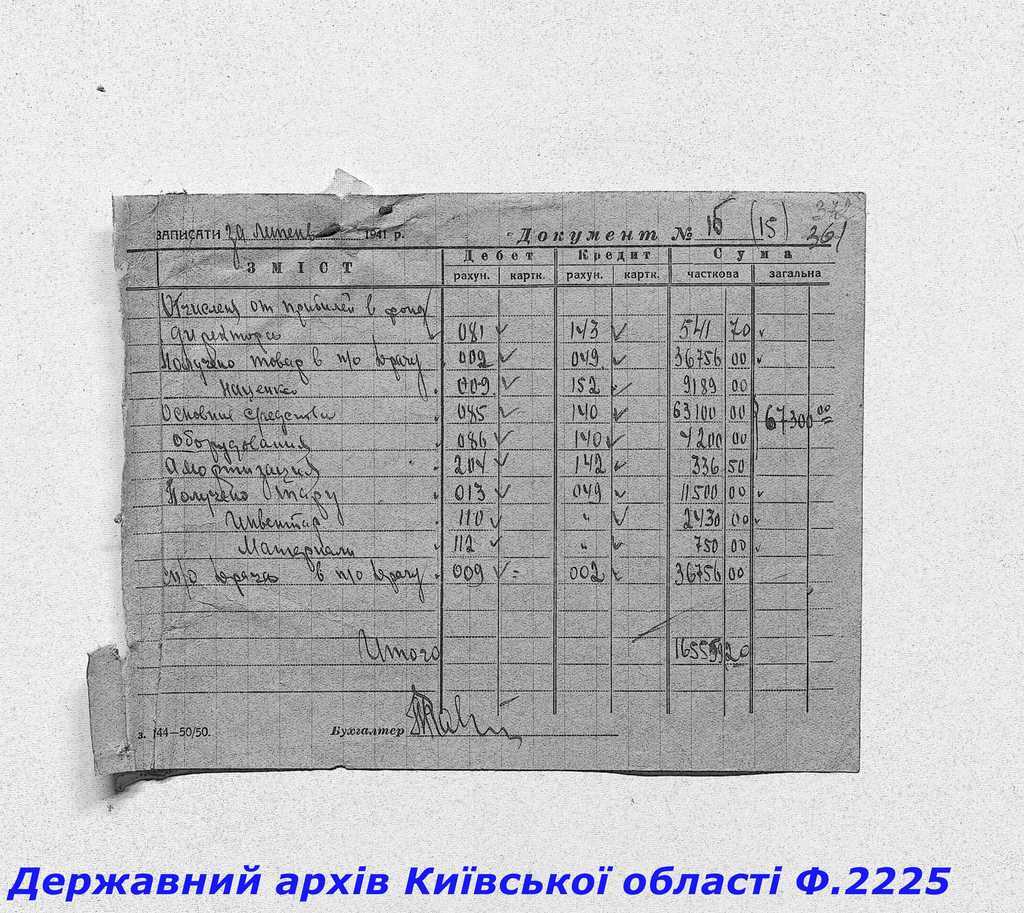 ЗАПИСАТИ за Липень 1941 р. Документ № 15 (15)
361
ЗМІСТ Дебет Кредит Сума
рахун. картк. рахун. картк. часткова загальна
Отчислен от прибилей в фонд
директора 081 143 541 70
Получено товар в п/о врачу 002 049 36756 00
Наценка 009 152 9189 00
Основние средства 085 140 63100 00 67300 00
Оборудования 086 140 4200 00
Амортизация 204 142 336 50
Получено Тару 013 049 11500 00
Инвентар 110 " 2430 00
Материали 112 " 750 00
в п/о врачу 009 002 36756 00
Итого 165559 20
з. 144—50/50. Бухгалтер
Державний архів Київської області Ф.2225